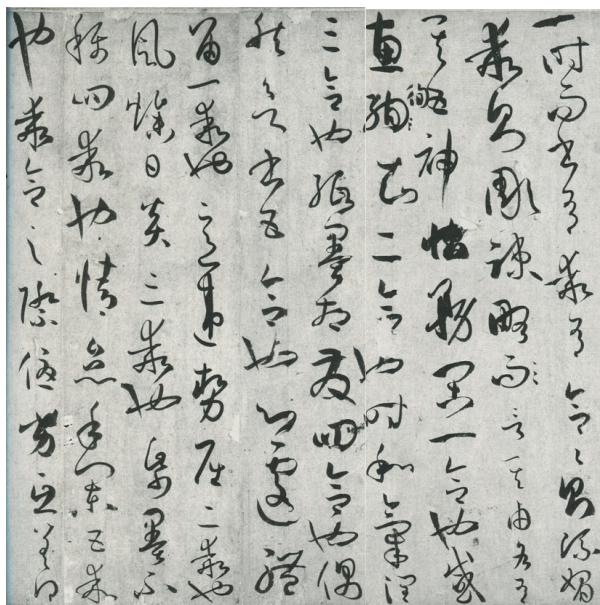 一時而書有乖有合合則流媚
乖則彫疎略而言其由各有
其五神怡務閑一合也感
惠徇知二合也時和氣潤
三合也紙墨相發四合也偶
然欲書五合也心遽體
留一乖也意違勢屈二乖也
風燥日炎三乖也紙墨不
稱四乖也情怠手闌五乖
也乖合之際優劣互差得